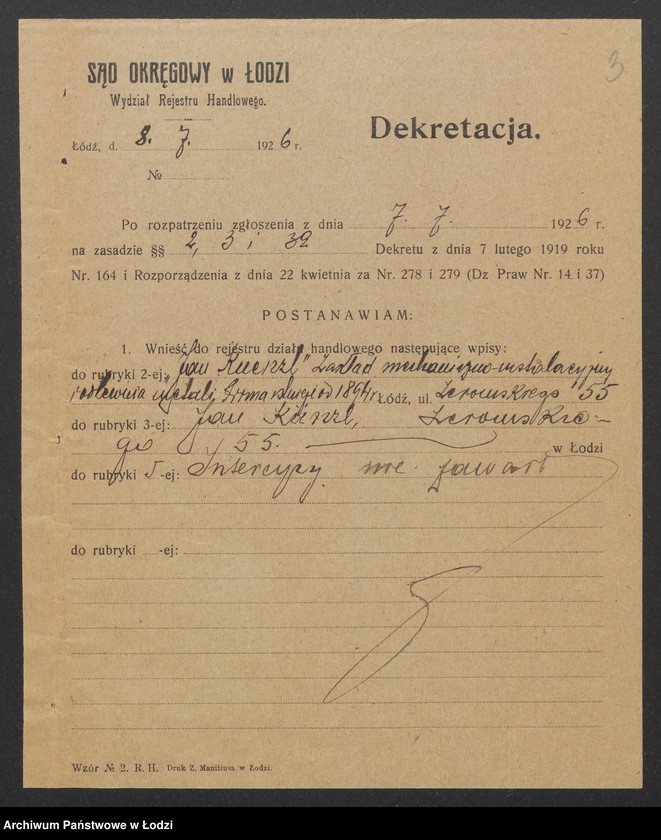 3
SĄD OKRĘGOWY w ŁODZI
Wydział Rejestru Handlowego.
Dekretacja.
Łódź, d. 8. 7. 1926 r.
№
Po rozpatrzeniu zgłoszenia z dnia 7. 7. 1926 r.
na zasadzie §§ 2, 3 i 32 Dekretu z dnia 7 lutego 1919 roku
Nr. 164 i Rozporządzenia z dnia 22 kwietnia za Nr. 278 i 279 (Dz Praw Nr. 14 i 37)
POSTANAWIAM:
1. Wnieść do rejestru działu handlowego następujące wpisy:
do rubryki 2-ej: „Jan Kuenzl" Zakład mechaniczno-instalacyjny
i odlewnia metali, Firma istnieje od 1894 r. Łódź, ul. Żeromskiego 55
do rubryki 3-ej: Jan Künzl, Żeromskie-
go 55. w Łodzi
do rubryki 5-ej: Intercyzy nie zawarł
do rubryki -ej:
Wzór № 2. R. H. Druk Z. Manitiusa w Łodzi.
Archiwum Państwowe w Łodzi